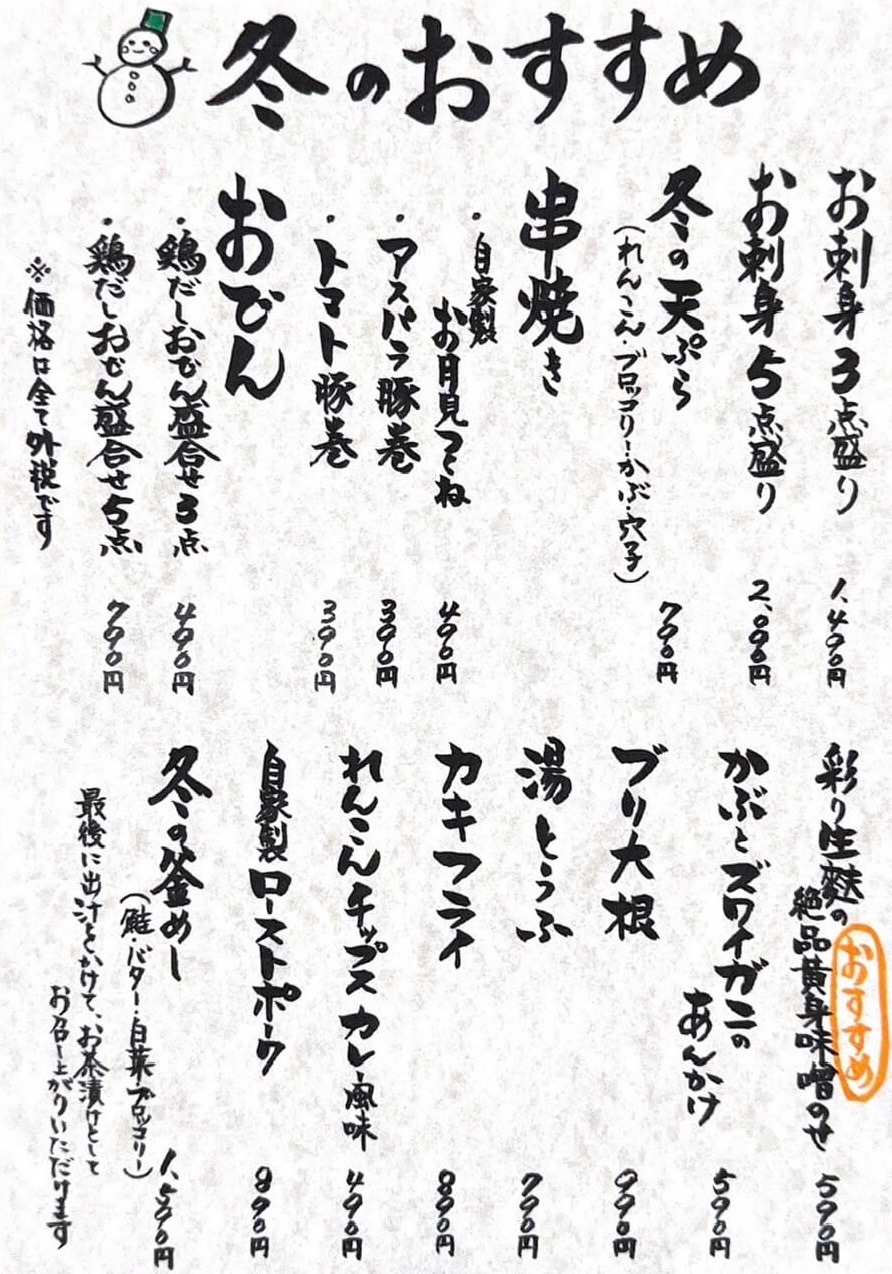 冬のおすすめ
お刺身3点盛り 1,490円
お刺身5点盛り 2,090円
冬の天ぷら 790円
(れんこん・ブロッコリー・かぶ・穴子)
串焼き
・自家製お月見つくね 490円
・アスパラ豚巻 390円
・トマト豚巻 390円
おでん
・鶏だしおでん盛合せ3点 490円
・鶏だしおでん盛合せ5点 790円
※価格は全て外税です
おすすめ
彩り生麩の
絶品黄身味噌のせ 590円
かぶとズワイガニの
あんかけ 590円
ブリ大根 990円
湯とうふ 790円
カキフライ 890円
れんこんチップスカレー風味 490円
自家製ローストポーク 890円
冬の釜めし 1,590円
(鮭・バター・白菜・ブロッコリー)
最後に出汁をかけて、お茶漬けとして
お召し上がりいただけます